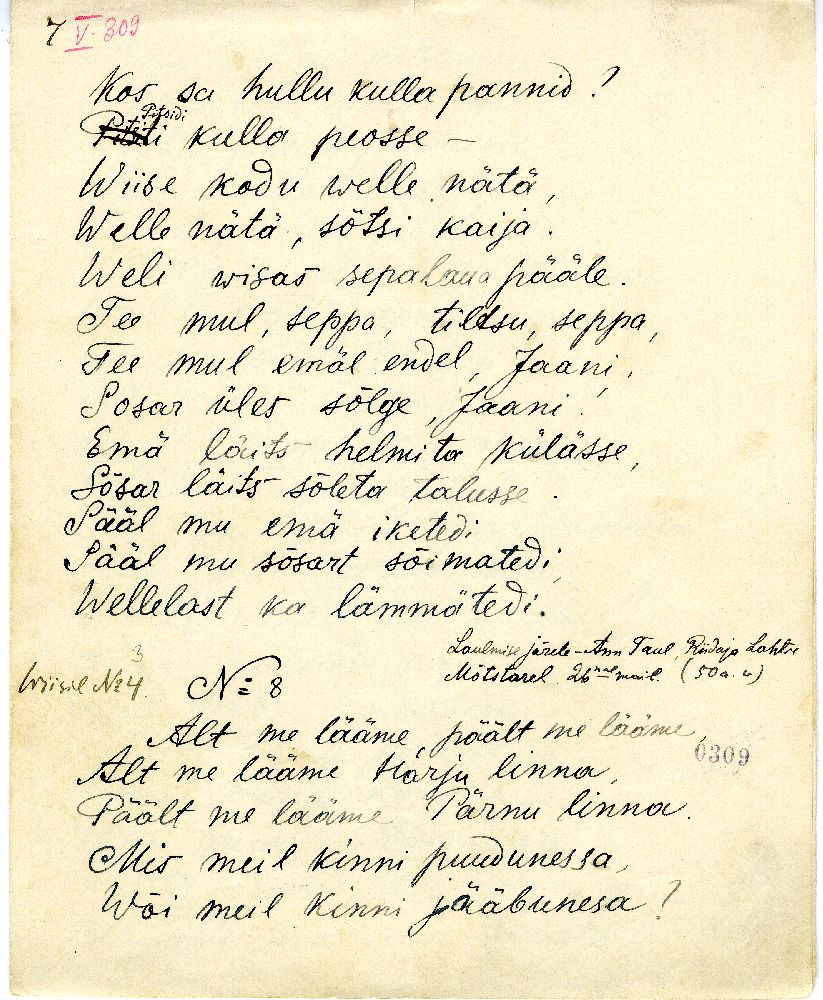 7 V. 309
Kos sa hullu kulla pannid?
Pitsidi
kulla peosse —
Wiise kodu welle nätä,
Welle nätä, sõtsi kaija.
Weli wisas sepalaua pääle.
Tee mul, seppa, tildsu, seppa,
Tee mul emäl endel, Jaani,
Sosar üles sõlge, Jaani!
Emä läits helmita külässe,
Sõsar läits sõleta talusse.
Pääl mu emä iketedi
Pääl mu sõsart sõimatedi,
Wellelast ka lämmätedi.
Laulmise järele – Ann Taul, Riidaja Lahtre
Mõtstarel 26nal mail. (50 a. v)
3
Wiisil № 4. № 8
Alt me lääme, päält me lääme,
0309
Alt me lääme Harju linna,
Päält me lääme Pärnu linna.
Mis meil kinni puudunessa,
Wõi meil kinni jääbunesa?